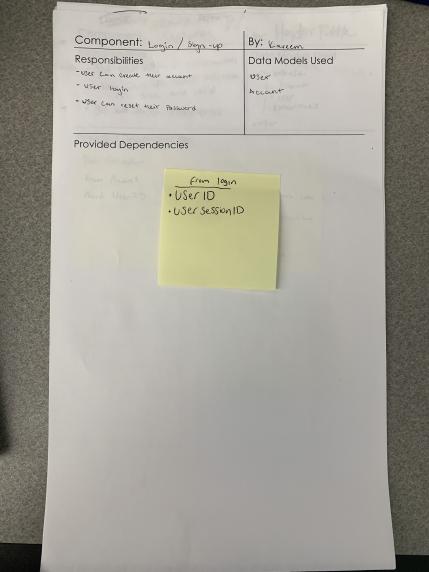 Component: Login / Sign-up
By: Kareem
Responsibilities
- User can create their account
- User login
- User can reset their Password
Data Models Used
User
Account
Provided Dependencies
From login
• User ID
• User SessionID